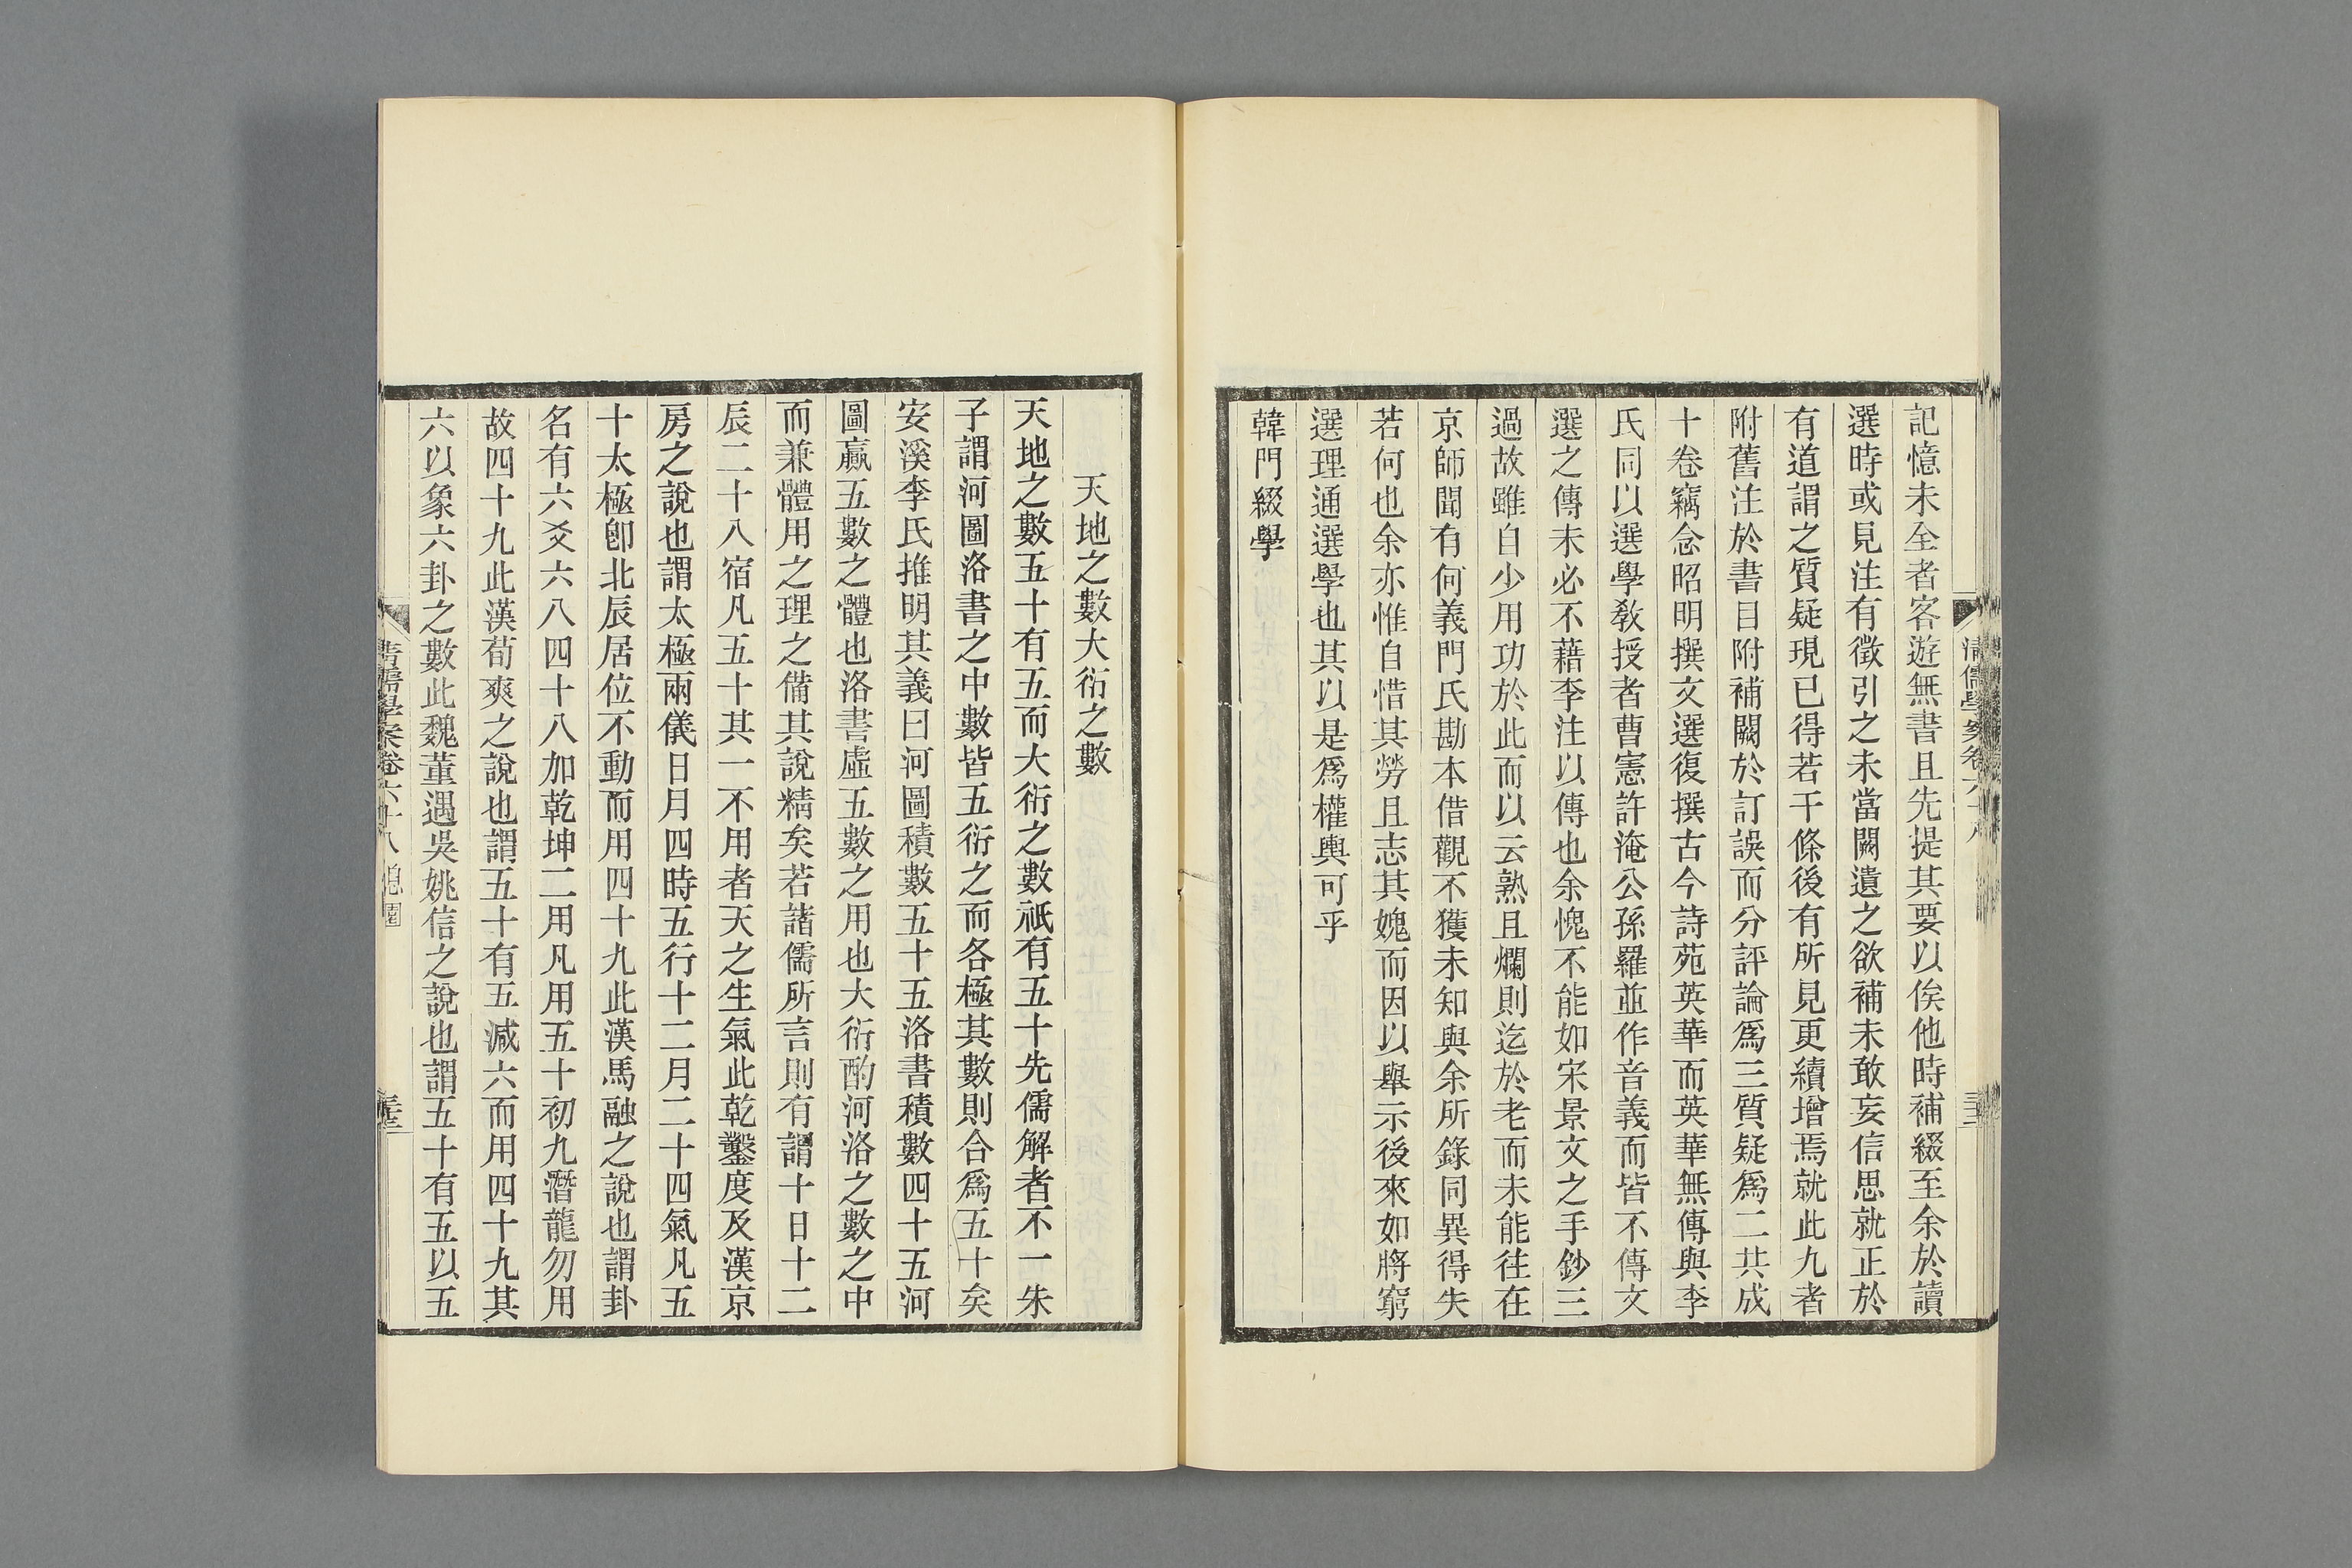 記憶未全者客遊無書且先提其要以俟他時補綴至余於讀
選時或見注有徵引之未當闕遺之欲補未敢妄信思就正於
有道謂之質疑現已得若干條後有所見更續增焉就此九者
附舊注於書目附補闕於訂誤而分評論爲三質疑爲二共成
十卷竊念昭明撰文選復撰古今詩苑英華而英華無傳與李
氏同以選學敎授者曹憲許淹公孫羅並作音義而皆不傳文
選之傳未必不藉李注以傳也余愧不能如宋景文之手鈔三
過故雖自少用功於此而以云熟且爛則迄於老而未能往在
京師聞有何義門氏勘本借觀不獲未知與余所錄同異得失
若何也余亦惟自惜其勞且志其媿而因以舉示後來如將窮
選理通選學也其以是爲權輿可乎
韓門綴學
天地之數大衍之數
天地之數五十有五而大衍之數祇有五十先儒解者不一朱
子謂河圖洛書之中數皆五衍之而各極其數則合爲五十矣
安溪李氏推明其義曰河圖積數五十五洛書積數四十五河
圖贏五數之體也洛書虛五數之用也大衍酌河洛之數之中
而兼體用之理之備其說精矣若諸儒所言則有謂十日十二
辰二十八宿凡五十其一不用者天之生氣此乾鑿度及漢京
房之說也謂太極兩儀日月四時五行十二月二十四氣凡五
十太極卽北辰居位不動而用四十九此漢馬融之說也謂卦
名有六爻六八四十八加乾坤二用凡用五十初九潛龍勿用
故四十九此漢荀爽之說也謂五十有五減六而用四十九其
六以象六卦之數此魏董遇吳姚信之說也謂五十有五以五
清儒學案卷六十八